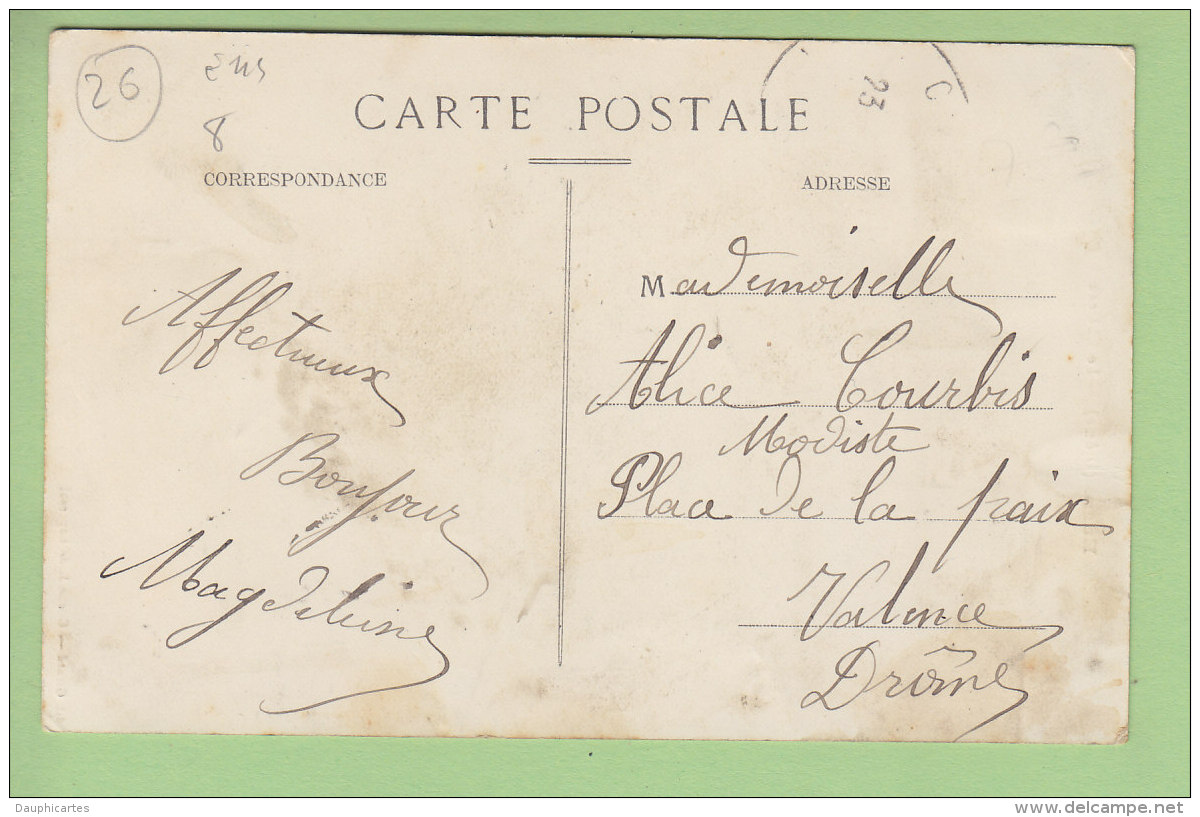 26
8
CARTE POSTALE
CORRESPONDANCE
ADRESSE
23
C
Affectueux
Bonjour
Magdeleine
Mademoiselle
Alice Courbis
Modiste
Place de la paix
Valence
Drôme
Dauphicartes
www.delcampe.net